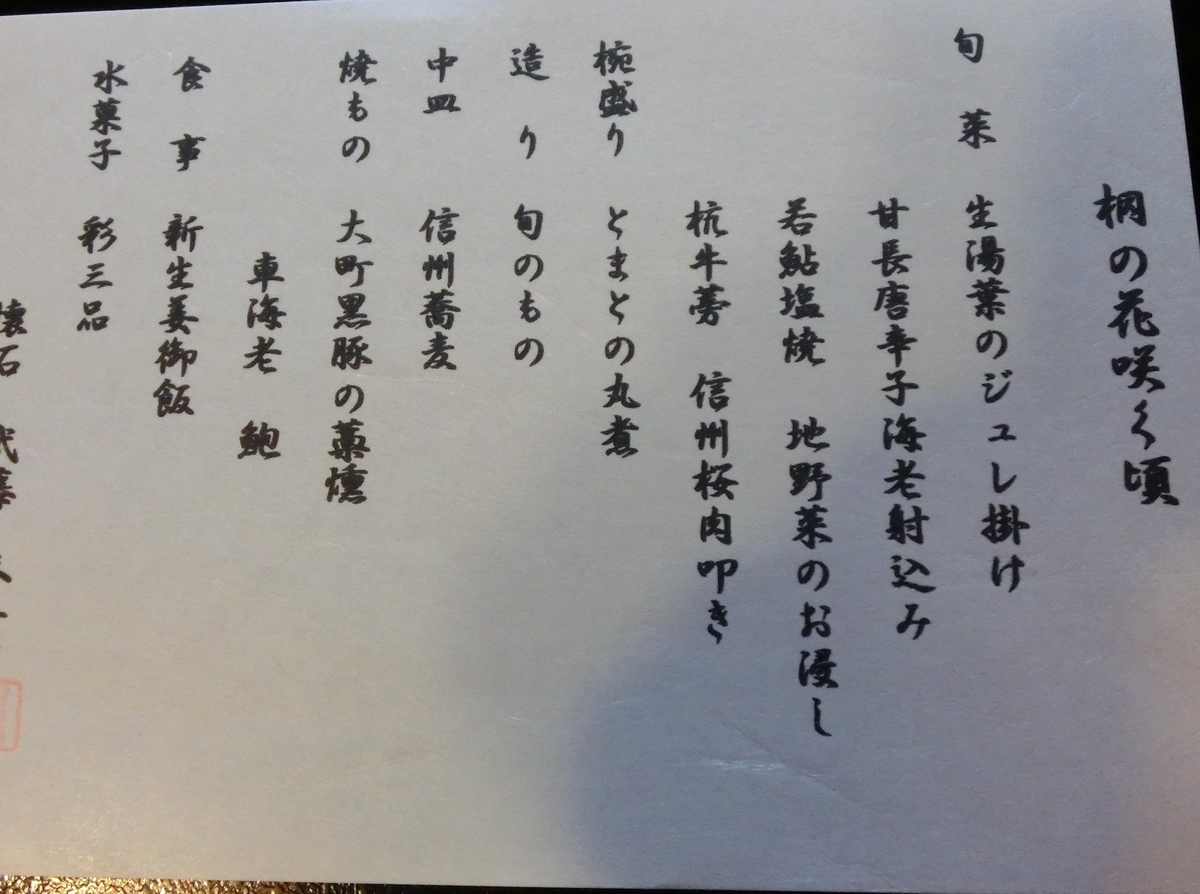 栃の花咲く頃
旬 菜 生湯葉のジュレ掛け
甘長唐辛子海老射込み
若鮎塩焼 地野菜のお浸し
杭牛蒡 信州桜肉叩き
椀盛り とまとの丸煮
造 り 旬のもの
中皿 信州蕎麦
焼もの 大町黒豚の藁燻
車海老 鮑
食 事 新生姜御飯
水菓子 彩三品
懐石